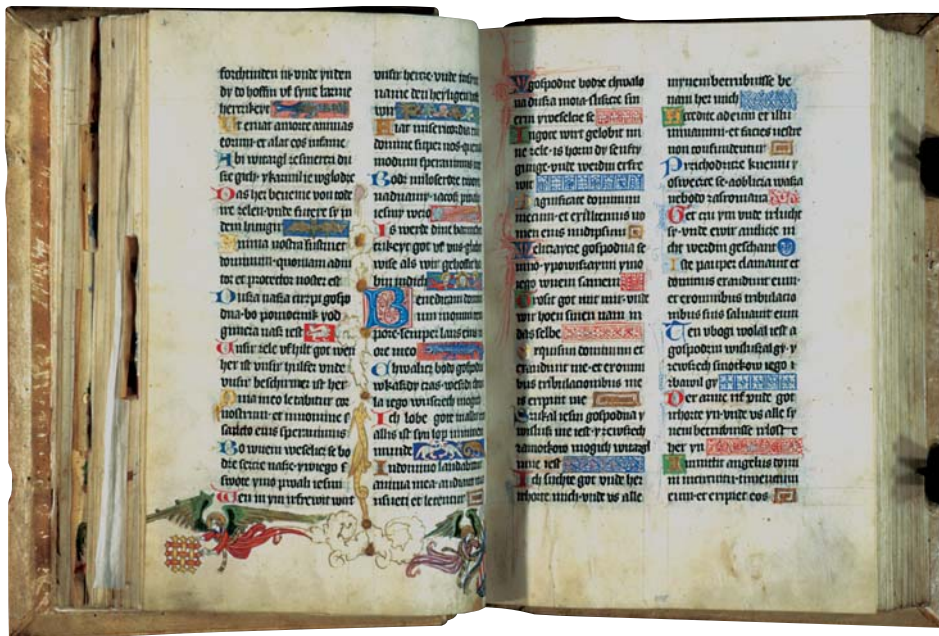 forchtinden in vnde ynden
dy do hoffin vf syne barme
herczikeyt
Ut eruat a morte animas
eorum et alat eos in fame
Abi witargl ze smerci du
sze gich y karmil ie w glodze
Das her beneme von tode
ire zelen vnde fuere sy in
dem hungir
Anima nostra sustinet
dominum quoniam adiu
tor et protector noster est
Dusza nasza cirzpi gospo
dna bo pomocznik y od
gimcza nasz iest
Unsir zele vfhilt got wen
her ist vnsir hulfer vnde
vnsir beschirmer ist her
Quia in eo letabitur cor
nostrum et in nomine s
sancto eius sperauimus
Bo w niem weselicz se bo
dze sercze nasze y w iego s
swote ymo pwali iesmi
Wen in ym irfrewit wirt
vnsir hercze vnde in syn
name den heyligen
wir
Fiat misericordia tua
domine super nos quem
modum sperauimus in te
Bodz miloserdze twoie
nad nami iacosz pwali
iesmy w cio
Is werde dine barmh
erczikeyt got vf vns glich
wise als wir gehoffit ha
bin in dich
Benedicam domi
num in omni tem
pore semper laus eius in
ore meo
Chwalicz bodo gospodna
w kaszdy czas weszdi chwa
la iego w usczech mogich
Ich lobe gote in allir czit
allis ist syn lop in minem
munde
In domino laudabitur
anima mea audiant man
sueti et letentur
W gospodne bodze chwalo
na dusza moia slyszcze smi
erni y weselcze se
In gote wirt gelobit mi
ne zele is horin dy senfty
ginge vnde werdin erfre
wit
Magnificate dominum
mecum et exaltemus no
men eius in id ipsum
Welbycze gospodna se
mno y powyszaymy ymo
iego w iem samem
Grosit got mit mir vnde
wir hoen sinen nam in
das selbe
Exquisiui dominum et
exaudiuit me et ex omni
bus tribulacionibus me
is eripuit me
Szukal iesm gospodna y
wisluszal me iest y ze wszech
zamotkow mogich witargl
me iest
Ich suchte got vnde her
irhorte mich vnde vs alle
mynem betrubnisse be
nam her mich
Accedite ad eum et illu
minamini et facies uestre
non confundentur
Przichodzcze k niemu y
osweccze se a oblicza wasza
ne bodo zasromana
Get czu ym vnde irlucht
sy vnde ewir anlicze ni
cht werdin geschant
Iste pauper clamauit et
dominus exaudiuit eum
et ex omnibus tribulacio
nibus eius saluauit eum
Ten vbogi wolal iest a
gospodzin wisluszal gy y
ze wszech smotkow iego z
zbawil gy
Der arme rif vnde got
irhorte yn vnde vs alle sy
nem betrubnisse irlost e
her yn
Inmittit angelus domi
ni in circuitu timencium
eum et eripiet eos